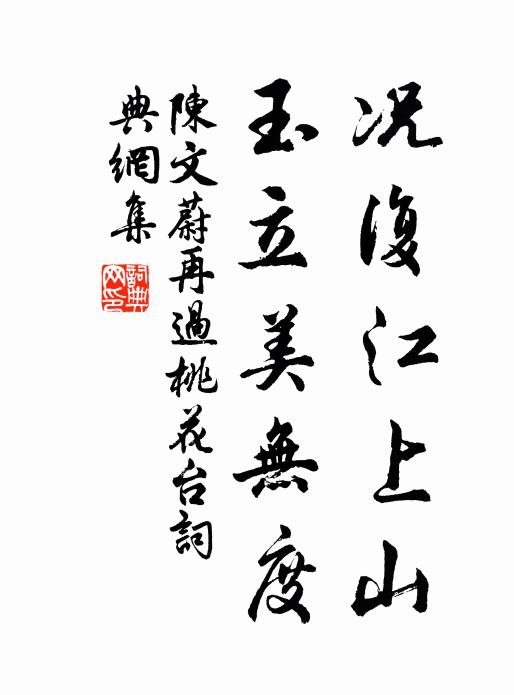 况復江上山
玉立美無度
陳文蔚再過桃花台詞
典網集
詞典網印